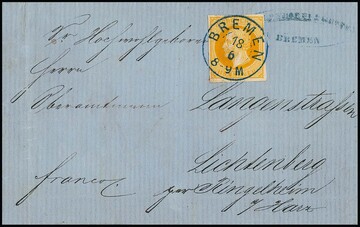 BREMEN
18
6
8-9 M
BREMEN
Sr. Hochwohlgeboren
Herrn
Oberamtmann Langenstrassen
Lichtenberg
franco. per Ringelheim
a/Harz